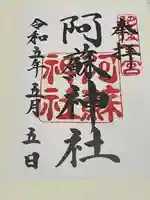 奉拝
阿蘇神社
阿蘇神社
令和五年五月五日